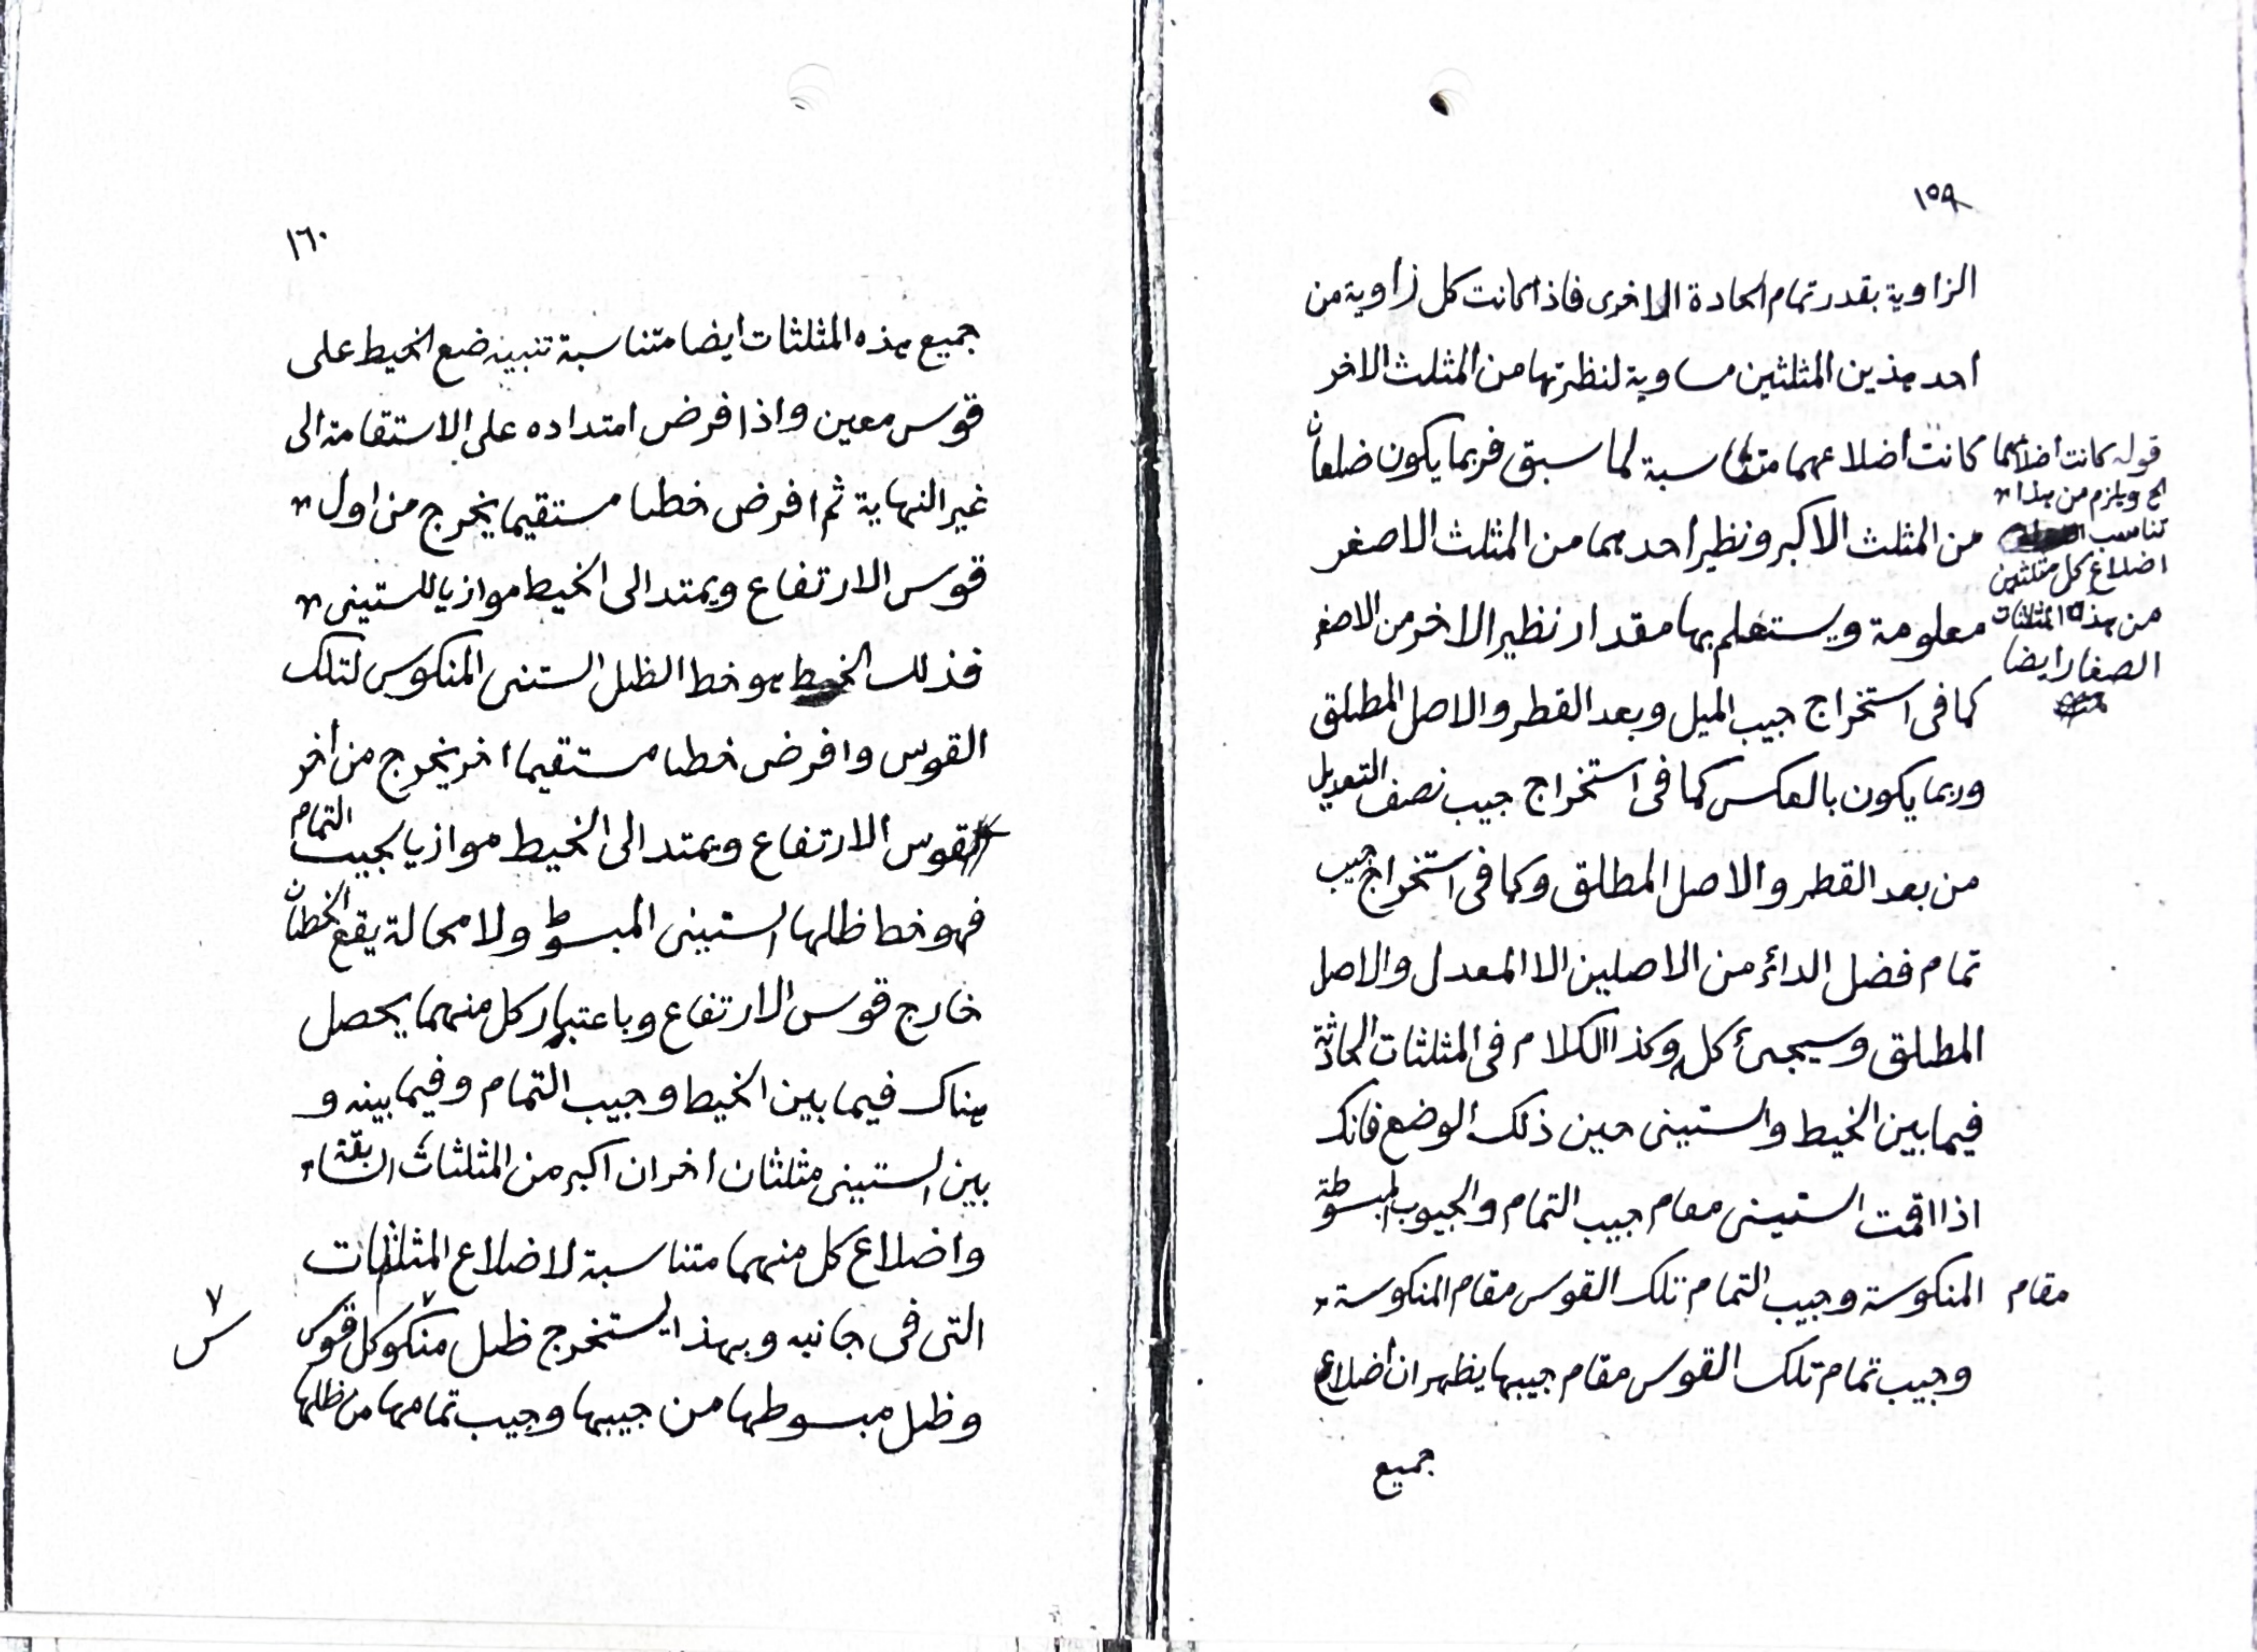 ١٥٩
الزاوية بقدر تمام الحادة الاخرى فاذا كانت كل زاوية من
احد هذين المثلثين مساوية لنظيرتها من المثلث الاخر
كانت اضلاعهما متناسبة لما سبق فربما يكون ضلعان
من المثلث الاكبر ونظير احدهما من المثلث الاصغر
معلومة ويستعلم بها مقدار نظير الاخر من الاصغر
كما فى استخراج جيب الميل وبعد القطر والاصل المطلق
وربما يكون بالعكس كما فى استخراج جيب نصف التعديل
من بعد القطر والاصل المطلق وكما فى استخراج جيب
تمام فضل الدائر من الاصلين الا المعدل والاصل
المطلق وسيجىٔ كل وكذا الكلام فى المثلثات الحادثة
فيما بين الخيط والستينى حين ذلك الوضع فانك
اذا اقمت الستينى مقام جيب التمام والجيوب المبسوطة
مقام المنكوسة وجيب التمام تلك القوس مقام المنكوسة
وجيب تمام تلك القوس مقام جيبها يظهر ان اضلاع
جميع
قوله كانت اضلاعهما
الخ ويلزم من هذا
تناسب
اضلاع كل مثلثين
من هذه المثلثات
الصغار ايضا
١٦٠
جميع هذه المثلثات ايضا متناسبة تنبيه ضع الخيط على
قوس معين واذا فرض امتداده على الاستقامة الى
غير النهاية ثم افرض خطا مستقيما يخرج من اول
قوس الارتفاع ويمتد الى الخيط موازيا للستينى
فذلك الخيط هو خط الظل الستنى المنكوس لتلك
القوس وافرض خطا مستقيما اخر يخرج من اخر
قوس الارتفاع ويمتد الى الخيط موازيا لجيب التمام
فهو خط ظلها الستينى المبسوط ولا محالة يقع الخطان
خارج قوس الارتفاع وباعتبار كل منهما يحصل
هناك فيما بين الخيط وجيب التمام وفيما بينه و
بين الستينى مثلثان اخران اكبر من المثلثات السابقة
واضلاع كل منهما متناسبة لاضلاع المثلثات
التى فى جانبه وبهذا يستخرج ظل منكو كل قوس
وظل مبسوطها من جيبها وجيب تمامها من ظلها
٧
س